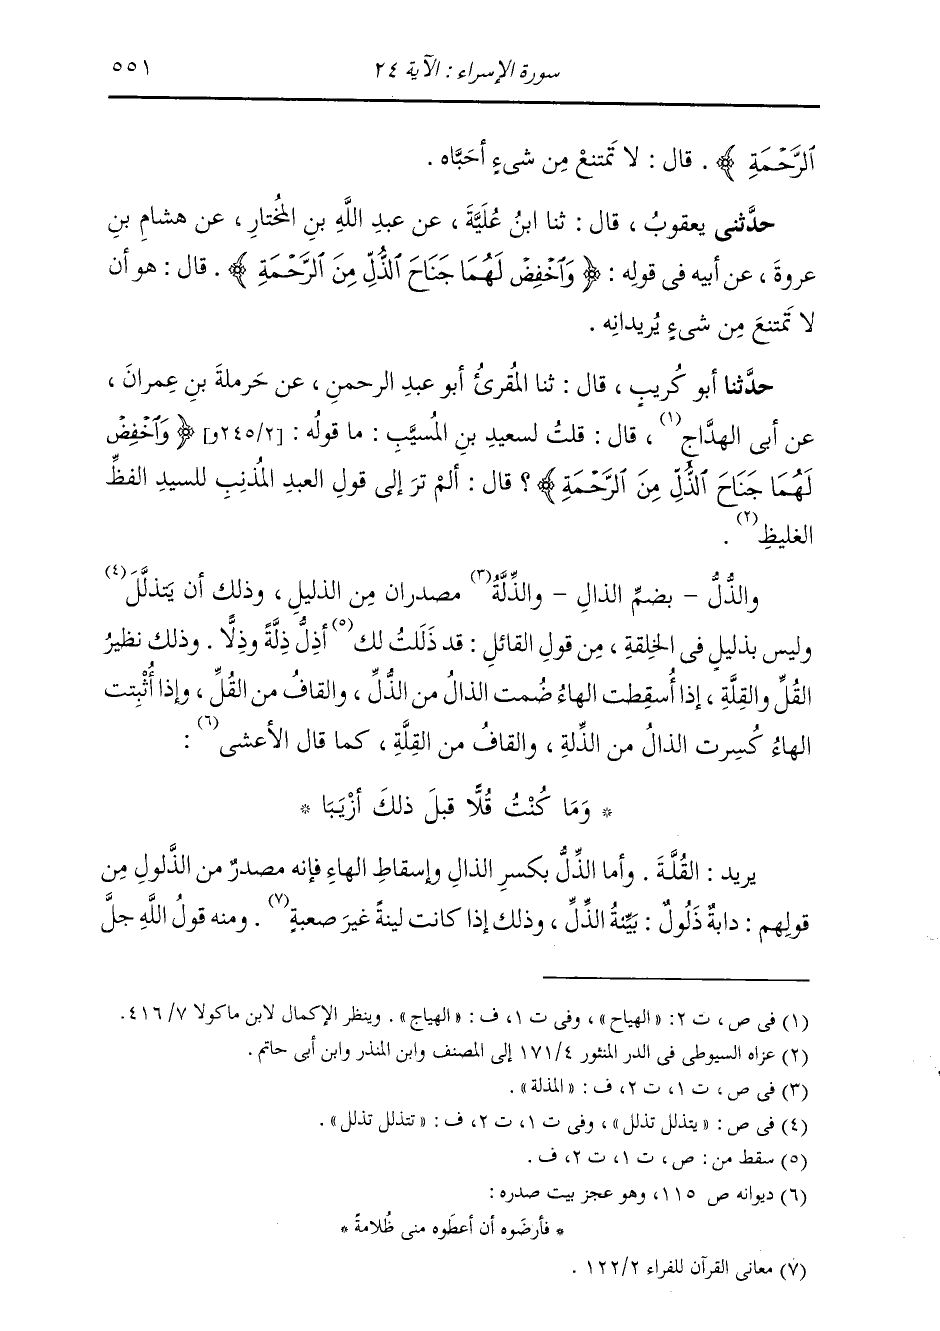 سورة الإسراء : الآية ٢٤
٥٥١
ٱلرَّحْمَةِ ﴾ . قال : لا تَمتنعْ مِن شىءٍ أحَبَّاه .
حدَّثنى يعقوبُ ، قال : ثنا ابنُ عُلَيَّةَ ، عن عبدِ اللَّهِ بنِ المُختارِ ، عن هشامِ بنِ
عروةَ ، عن أبيه فى قولِه : ﴿ وَٱخْفِضْ لَهُمَا جَنَاحَ ٱلذُّلِّ مِنَ ٱلرَّحْمَةِ ﴾ . قال : هو أن
لا تَمتنعَ مِن شىءٍ يُريدانِه .
حدَّثنا أبو كُريبٍ ، قال : ثنا المُقرئُ أبو عبدِ الرحمنِ ، عن حَرملةَ بنِ عِمرانَ ،
عن أبى الهدَّاجِ(١) ، قال : قلتُ لسعيدِ بنِ المُسيَّبِ : ما قولُه : [٢٤٥/٢و] ﴿ وَٱخْفِضْ
لَهُمَا جَنَاحَ ٱلذُّلِّ مِنَ ٱلرَّحْمَةِ ﴾ ؟ قال : ألمْ ترَ إلى قولِ العبدِ المُذنِبِ للسيدِ الفظِّ
الغليظِ(٢) .
والذُّلُّ - بضمِّ الذالِ - والذِّلَّةُ(٣) مصدران مِن الذليلِ ، وذلك أن يَتذلَّلَ(٤)
وليس بذليلٍ فى الخِلقةِ ، مِن قولِ القائلِ : قد ذَلَلتُ لك(٥) أذِلُّ ذِلَّةً وذِلًّا . وذلك نظيرُ
القُلِّ والقِلَّةِ ، إذا أُسقِطت الهاءُ ضُمت الذالُ من الذُّلِّ ، والقافُ من القُلِّ ، وإذا أُثْبِتت
الهاءُ كُسِرت الذالُ من الذِّلةِ ، والقافُ من القِلَّةِ ، كما قال الأعشى(٦) :
* وَمَا كُنْتُ قُلًّا قبلَ ذلكَ أزْيَبَا *
يريد : القُلَّةَ . وأما الذِّلُّ بكسرِ الذالِ وإسقاطِ الهاءِ فإنه مصدرٌ من الذَّلولِ مِن
قولِهم : دابةٌ ذَلُولٌ : بَيِّنةُ الذِّلِّ ، وذلك إذا كانت لينةً غيرَ صعبةٍ(٧) . ومنه قولُ اللَّهِ جلَّ
(١) فى ص، ت ٢: «الهياح» ، وفى ت ١، ف : «الهياج» . وينظر الإكمال لابن ماكولا ٧/ ٤١٦.
(٢) عزاه السيوطى فى الدر المنثور ١٧١/٤ إلى المصنف وابن المنذر وابن أبى حاتم .
(٣) فى ص، ت ١، ت ٢، ف : «المذلة» .
(٤) فى ص : «يتذلل تذلل» ، وفى ت ١، ت ٢، ف : «تتذلل تذلل» .
(٥) سقط من : ص، ت ١، ت ٢، ف .
(٦) ديوانه ص ١١٥، وهو عجز بيت صدره :
* فأرضَوه أن أعطَوه منى ظُلامةً *
(٧) معانى القرآن للفراء ١٢٢/٢ .